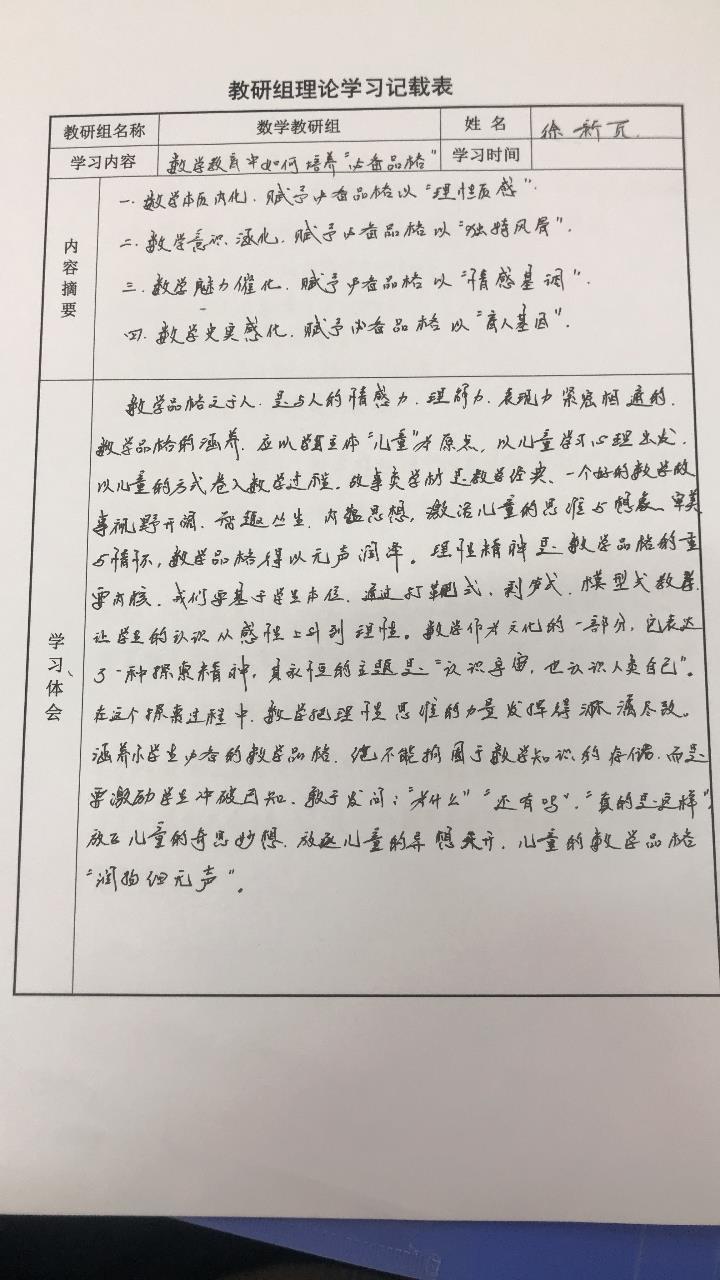 教研组理论学习记载表
教研组名称 数学教研组 姓名 徐新瓦
学习内容 数学教育中如何培养"必备品格" 学习时间
内容摘要
一.数学本质内化.赋予必备品格以"理性质感".
二.数学意识涵化.赋予必备品格以"独特风层".
三.数学魅力催化.赋予必备品格以"情感基调".
四.数学史实感化.赋予必备品格以"育人基因".
学习、体会
数学品格之于人.是与人的情感力.理解力.表现力紧密相通的.
数学品格的涵养.应以学习主体"儿童"为原点,以儿童学习心理出发.
以儿童的方式卷入数学过程。故事类学材是数学经典、一个好的数学故
事视野开阔.智趣丛生.内蕴思想,激活儿童的思维与想象、审美
与情怀,数学品格得以无声润泽。理性精神是数学品格的重
要内核.我们要基于学生本位.通过打靶式、剥笋式.模型式教学.
让学生的认识从感性上升到理性。数学作为文化的一部分,它表达
了一种探索精神,其永恒的主题是"认识宇宙,也认识人类自己"。
在这个探索过程中.数学把理性思维的力量发挥得淋漓尽致。
涵养小学生必备的数学品格.绝不能拘囿于数学知识的存储.而是
要激励学生冲破已知.敢于发问:"为什么""还有吗"."真的是这样".
放飞儿童的奇思妙想.放逐儿童的异想天开.儿童的数学品格
"润物细无声"。